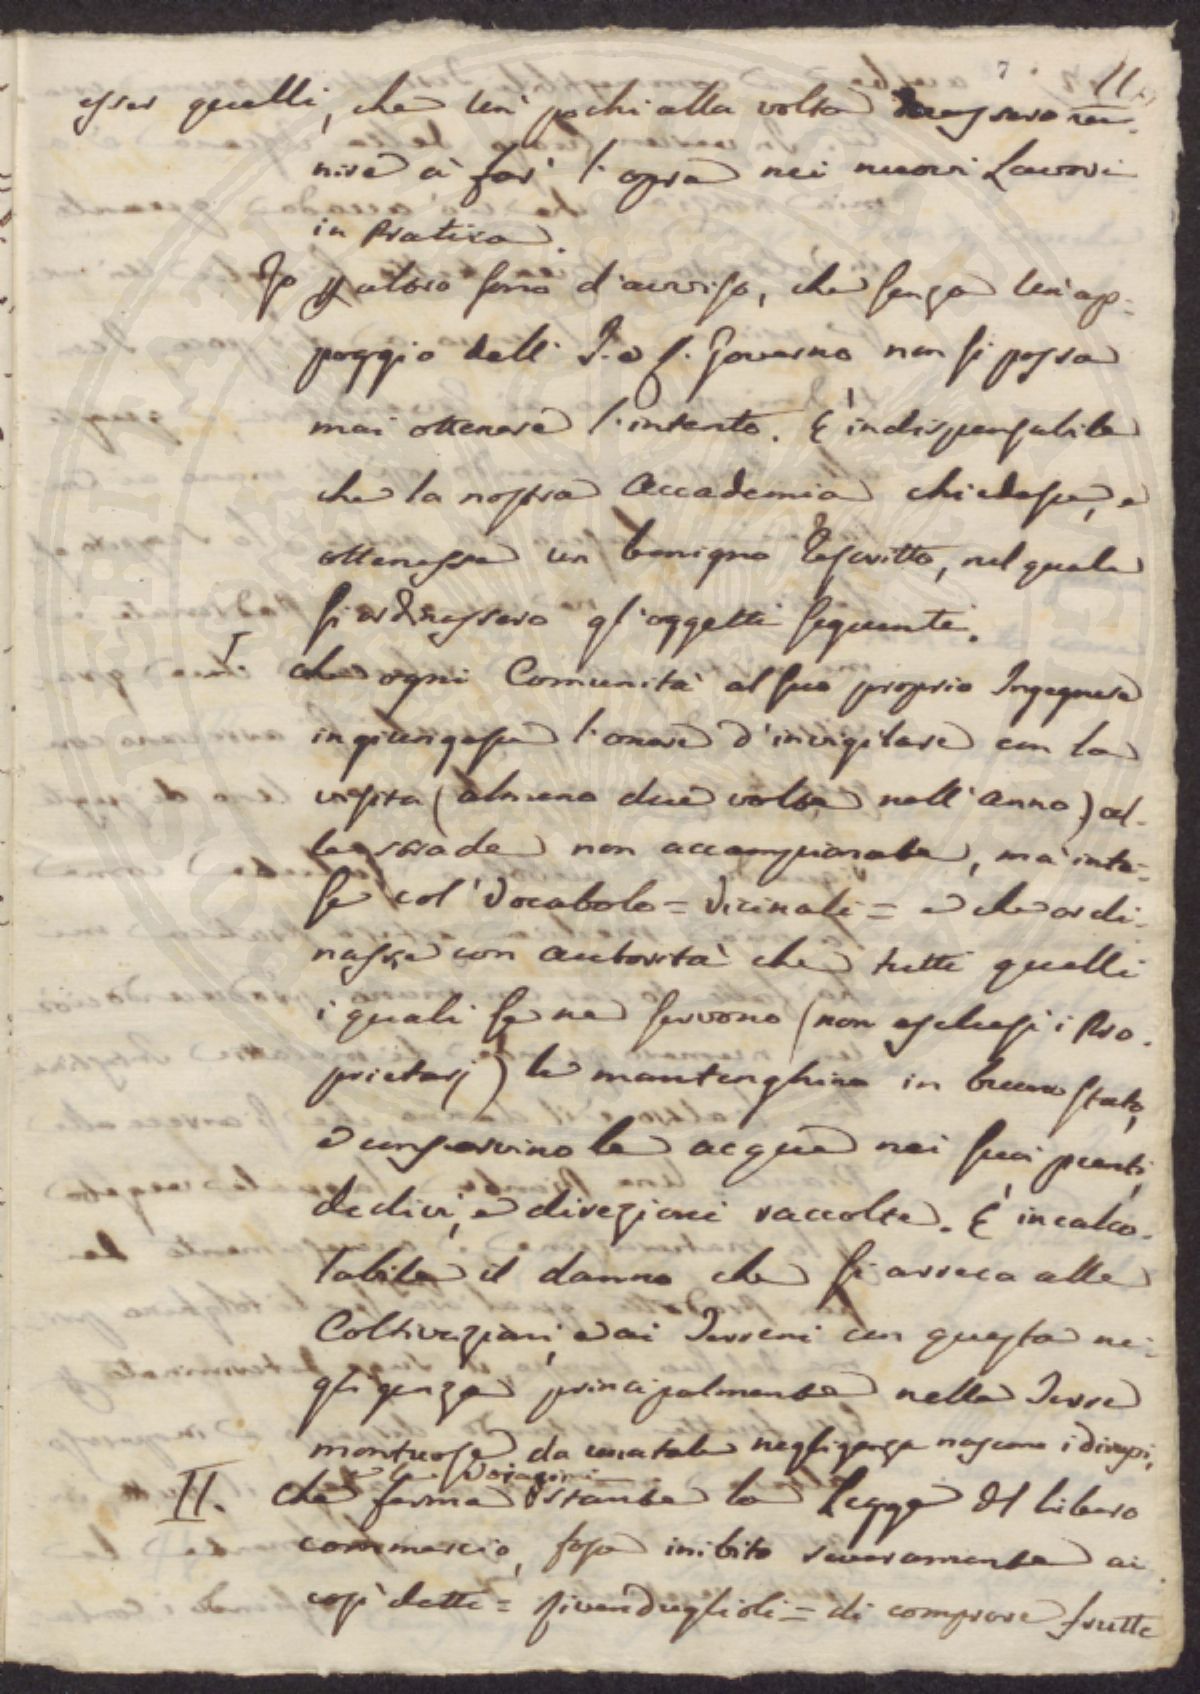 7 11
esser quelli, che un' pochi alla volta dovessero ve-
nire à far' l'opra nei nuovi Lavori
in Pratica.
Io altro sono d'avviso, che senza un' ap-
poggio dell' I. e R. Governo non si possa
mai ottenere l'intento. È indispensabile
che la nostra Accademia chiedesse, e
ottenesse un benigno Rescritto, nel quale
si ordinassero gl'oggetti seguenti.
I. che ogni Comunità al suo proprio Ingegnere
ingiungesse l'onere d'invigilare con la
visita (almeno due volte nell'anno) al-
le strade non accampionate, mà inte-
se col' Vocabolo = Vicinali = e che ordi-
nasse con autorità che tutti quelli
i quali se ne servono (non esclusi i Pro-
prietarj) le mantenghino in buono stato,
e conservino le acque nei suoi punti,
declivi, e direzioni raccolte. È incalco-
labile il danno che si arreca alle
Coltivazioni, e ai Terreni con questa ne-
gligenza principalmente nelle Terre
montuose da una tale negligenza nascono i dirupi,
e le Voragini
II. che ferma stante la Legge del libero
commercio, fosse inibito severamente ai
così detti = Rivenduglioli = di comprare frutte